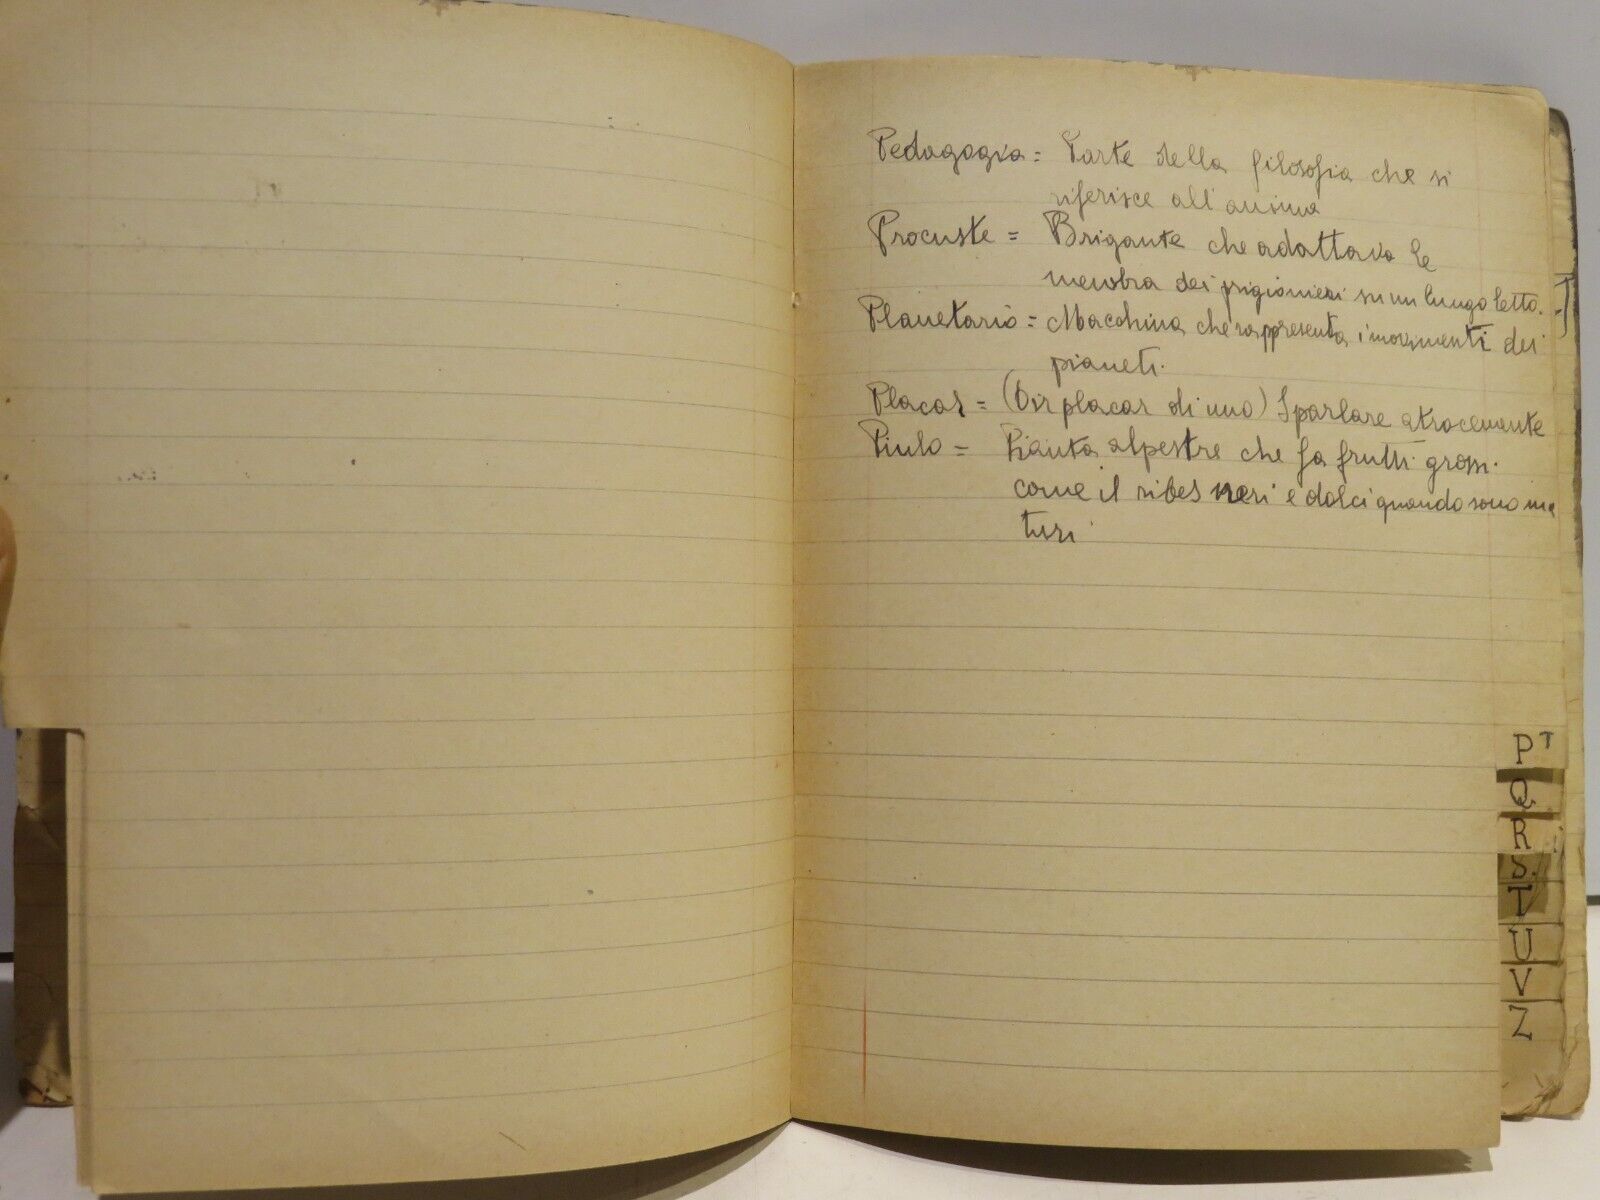 Pedagogia = Parte della filosofia che si
riferisce all'anima
Procuste = Brigante che adattava le
membra dei prigionieri su un lungo letto.
Planetario = Macchina che rappresenta i movimenti dei
pianeti.
Placas = (Dir placas di uno) Sparlare atrocemente
Piulo = Pianta alpestre che fa frutti grossi
come il ribes neri e dolci quando sono ma
turi
P
Q
R
S.
T
U
V
Z